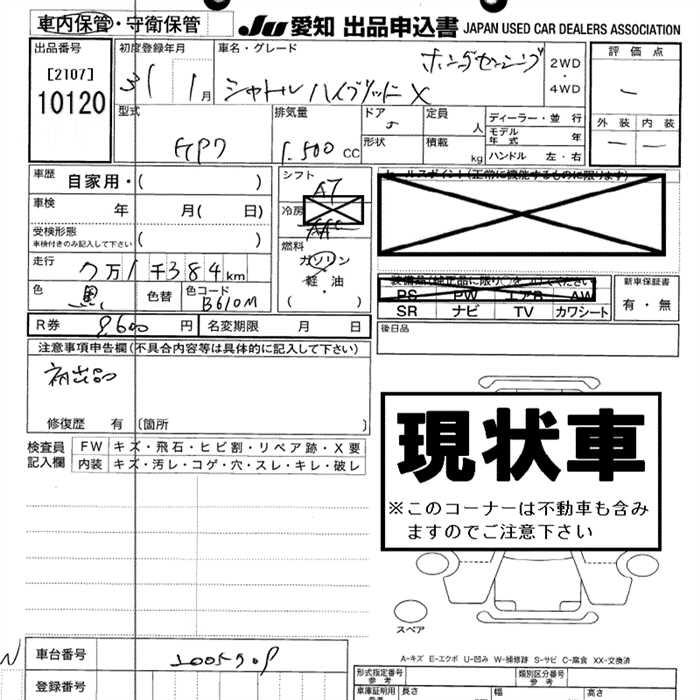 車内保管・守衛保管
JU 愛知 出品申込書 JAPAN USED CAR DEALERS ASSOCIATION
出品番号
[2107]
10120
初度登録年月
31 1月
車名・グレード
シャトル ハイブリッド X
ホンダセンシング
2WD
・
4WD
評価点
ー
外装 内装
ー ー
型式
GP7
排気量
1.500 cc
ドア
5
形状
定員
人
積載
kg
ディーラー・並行
モデル年式 年
ハンドル 左・右
車歴
自家用・( )
車検
年 月( 日)
受検形態
車検付きのみ記入して下さい
( )
走行
7万1千384km
色
黒
色替
色コード
B610M
シフト
AT
冷房
AAC
燃料
ガソリン
・
軽油
・
( )
セールスポイント(正常に機能するものに限ります)
装備品(純正品に限り○を打してください)
PS PW エアB AW
SR ナビ TV カワシート
新車保証書
有・無
後日品
R券 9,600 円
名変期限 月 日
注意事項申告欄(不具合内容等は具体的に記入して下さい)
初出品
修復歴 有 (箇所 )
検査員記入欄
FW キズ・飛石・ヒビ割・リペア跡・X要
内装 キズ・汚レ・コゲ・穴・スレ・キレ・破レ
現状車
※このコーナーは不動車も含み
ますのでご注意下さい
スペア
A-キズ E-エクボ U-凹み W-補修跡 S-サビ C-腐食 XX-交換済
N
車台番号
2005509
登録番号
形式指定番号
参考
類別区分番号
参考
車庫証明用
参考
長さ 幅 高さ